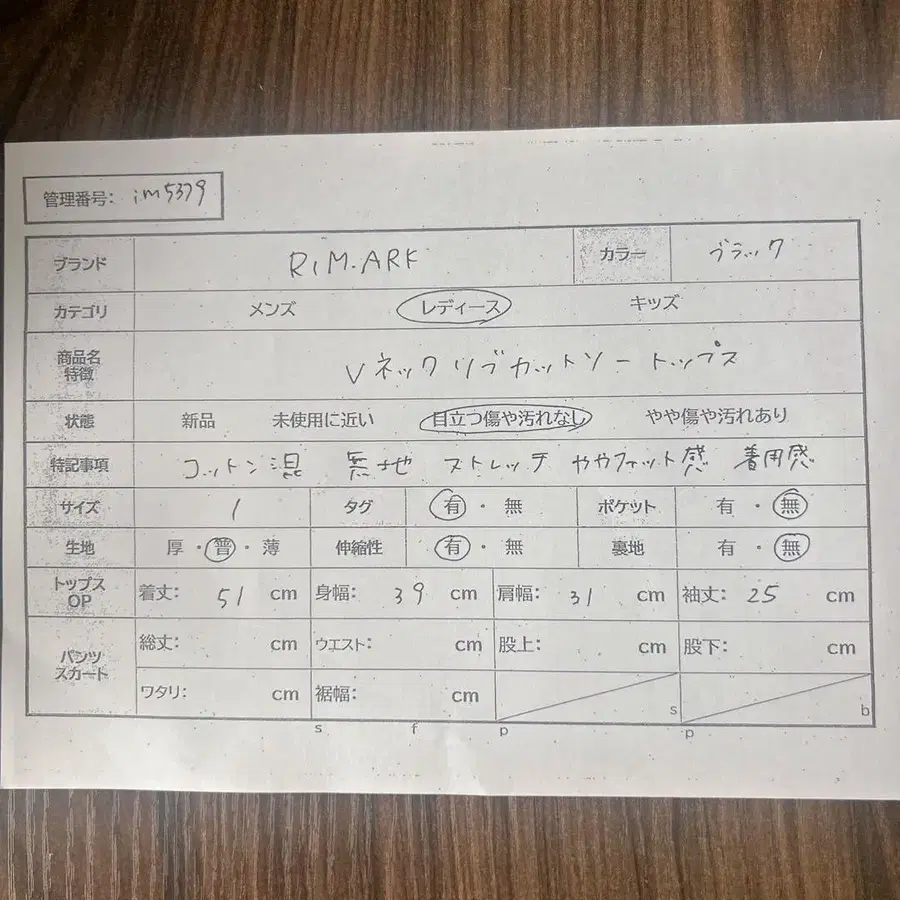 管理番号: im5379
ブランド RIM.ARK カラー ブラック
カテゴリ メンズ レディース キッズ
商品名 特徴 Vネックリブカットソー トップス
状態 新品 未使用に近い 目立つ傷や汚れなし やや傷や汚れあり
特記事項 コットン混 無地 ストレッチ ややフィット感 着用感
サイズ 1 タグ 有・無 ポケット 有・無
生地 厚・普・薄 伸縮性 有・無 裏地 有・無
トップス OP 着丈: 51 cm 身幅: 39 cm 肩幅: 31 cm 袖丈: 25 cm
パンツ スカート 総丈: cm ウエスト: cm 股上: cm 股下: cm
ワタリ: cm 裾幅: cm s b
s f p p